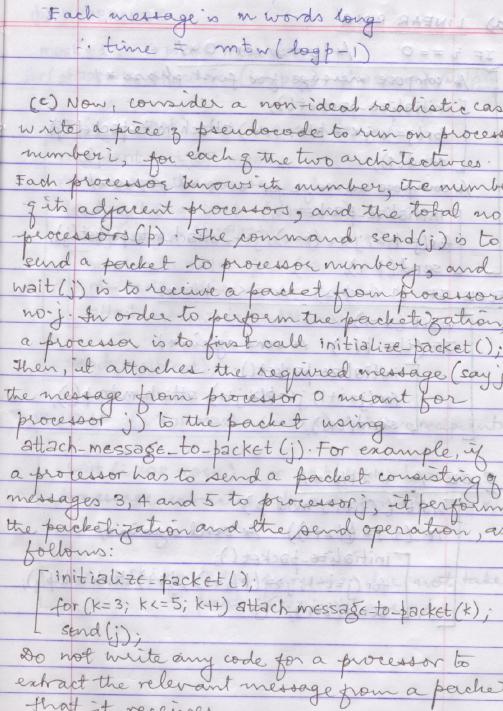 Each message is m words long
∴ time = mtw (logp-1)
(c) Now, consider a non-ideal realistic cas
write a piece of pseudocode to run on process
number i, for each of the two architectures.
Each processor knows its number, the numb
of its adjacent processors, and the total no
processors (p). The command send(j) is to
send a packet to processor number j, and
wait(j) is to receive a packet from processor
no. j. In order to perform the packetization
a processor is to first call initialize_packet();
Then, it attaches the required message (say j
the message from processor 0 meant for
processor j) to the packet using
attach-message_to-packet (j). For example, if
a processor has to send a packet consisting of
messages 3, 4 and 5 to processor j, it perform
the packetization and the send operation, a
follows:
initialize-packet();
for (k=3; k<=5; k++) attach_message-to-packet(k);
send(j);
Do not write any code for a processor to
extract the relevant message from a packe
that it receives